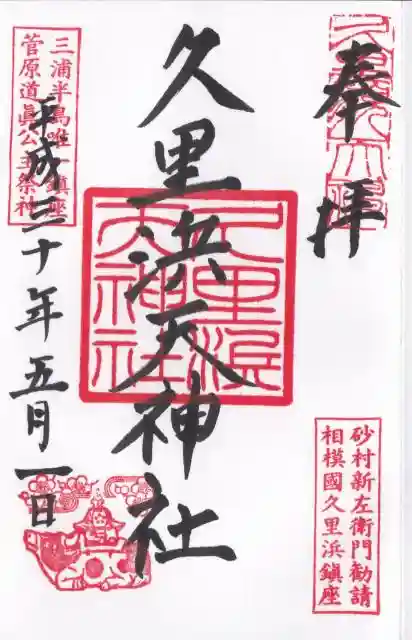 奉拝
久里浜天神社
久里浜
天神社
三浦半島唯一鎮座
菅原道眞公主祭神
平成三十年五月一日
砂村新左衛門勧請
相模國久里浜鎮座